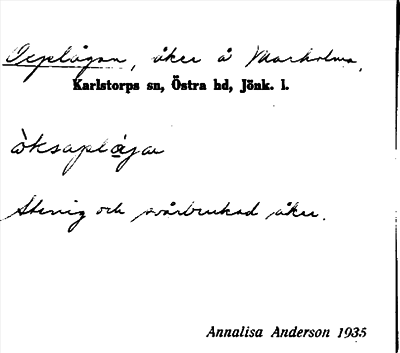 Oxplågan, åker å Marholma,
Karlstorps sn, Östra hd, Jönk. l.
òksaplågar
Stenig och svårbrukad åker.
Annalisa Anderson 1935